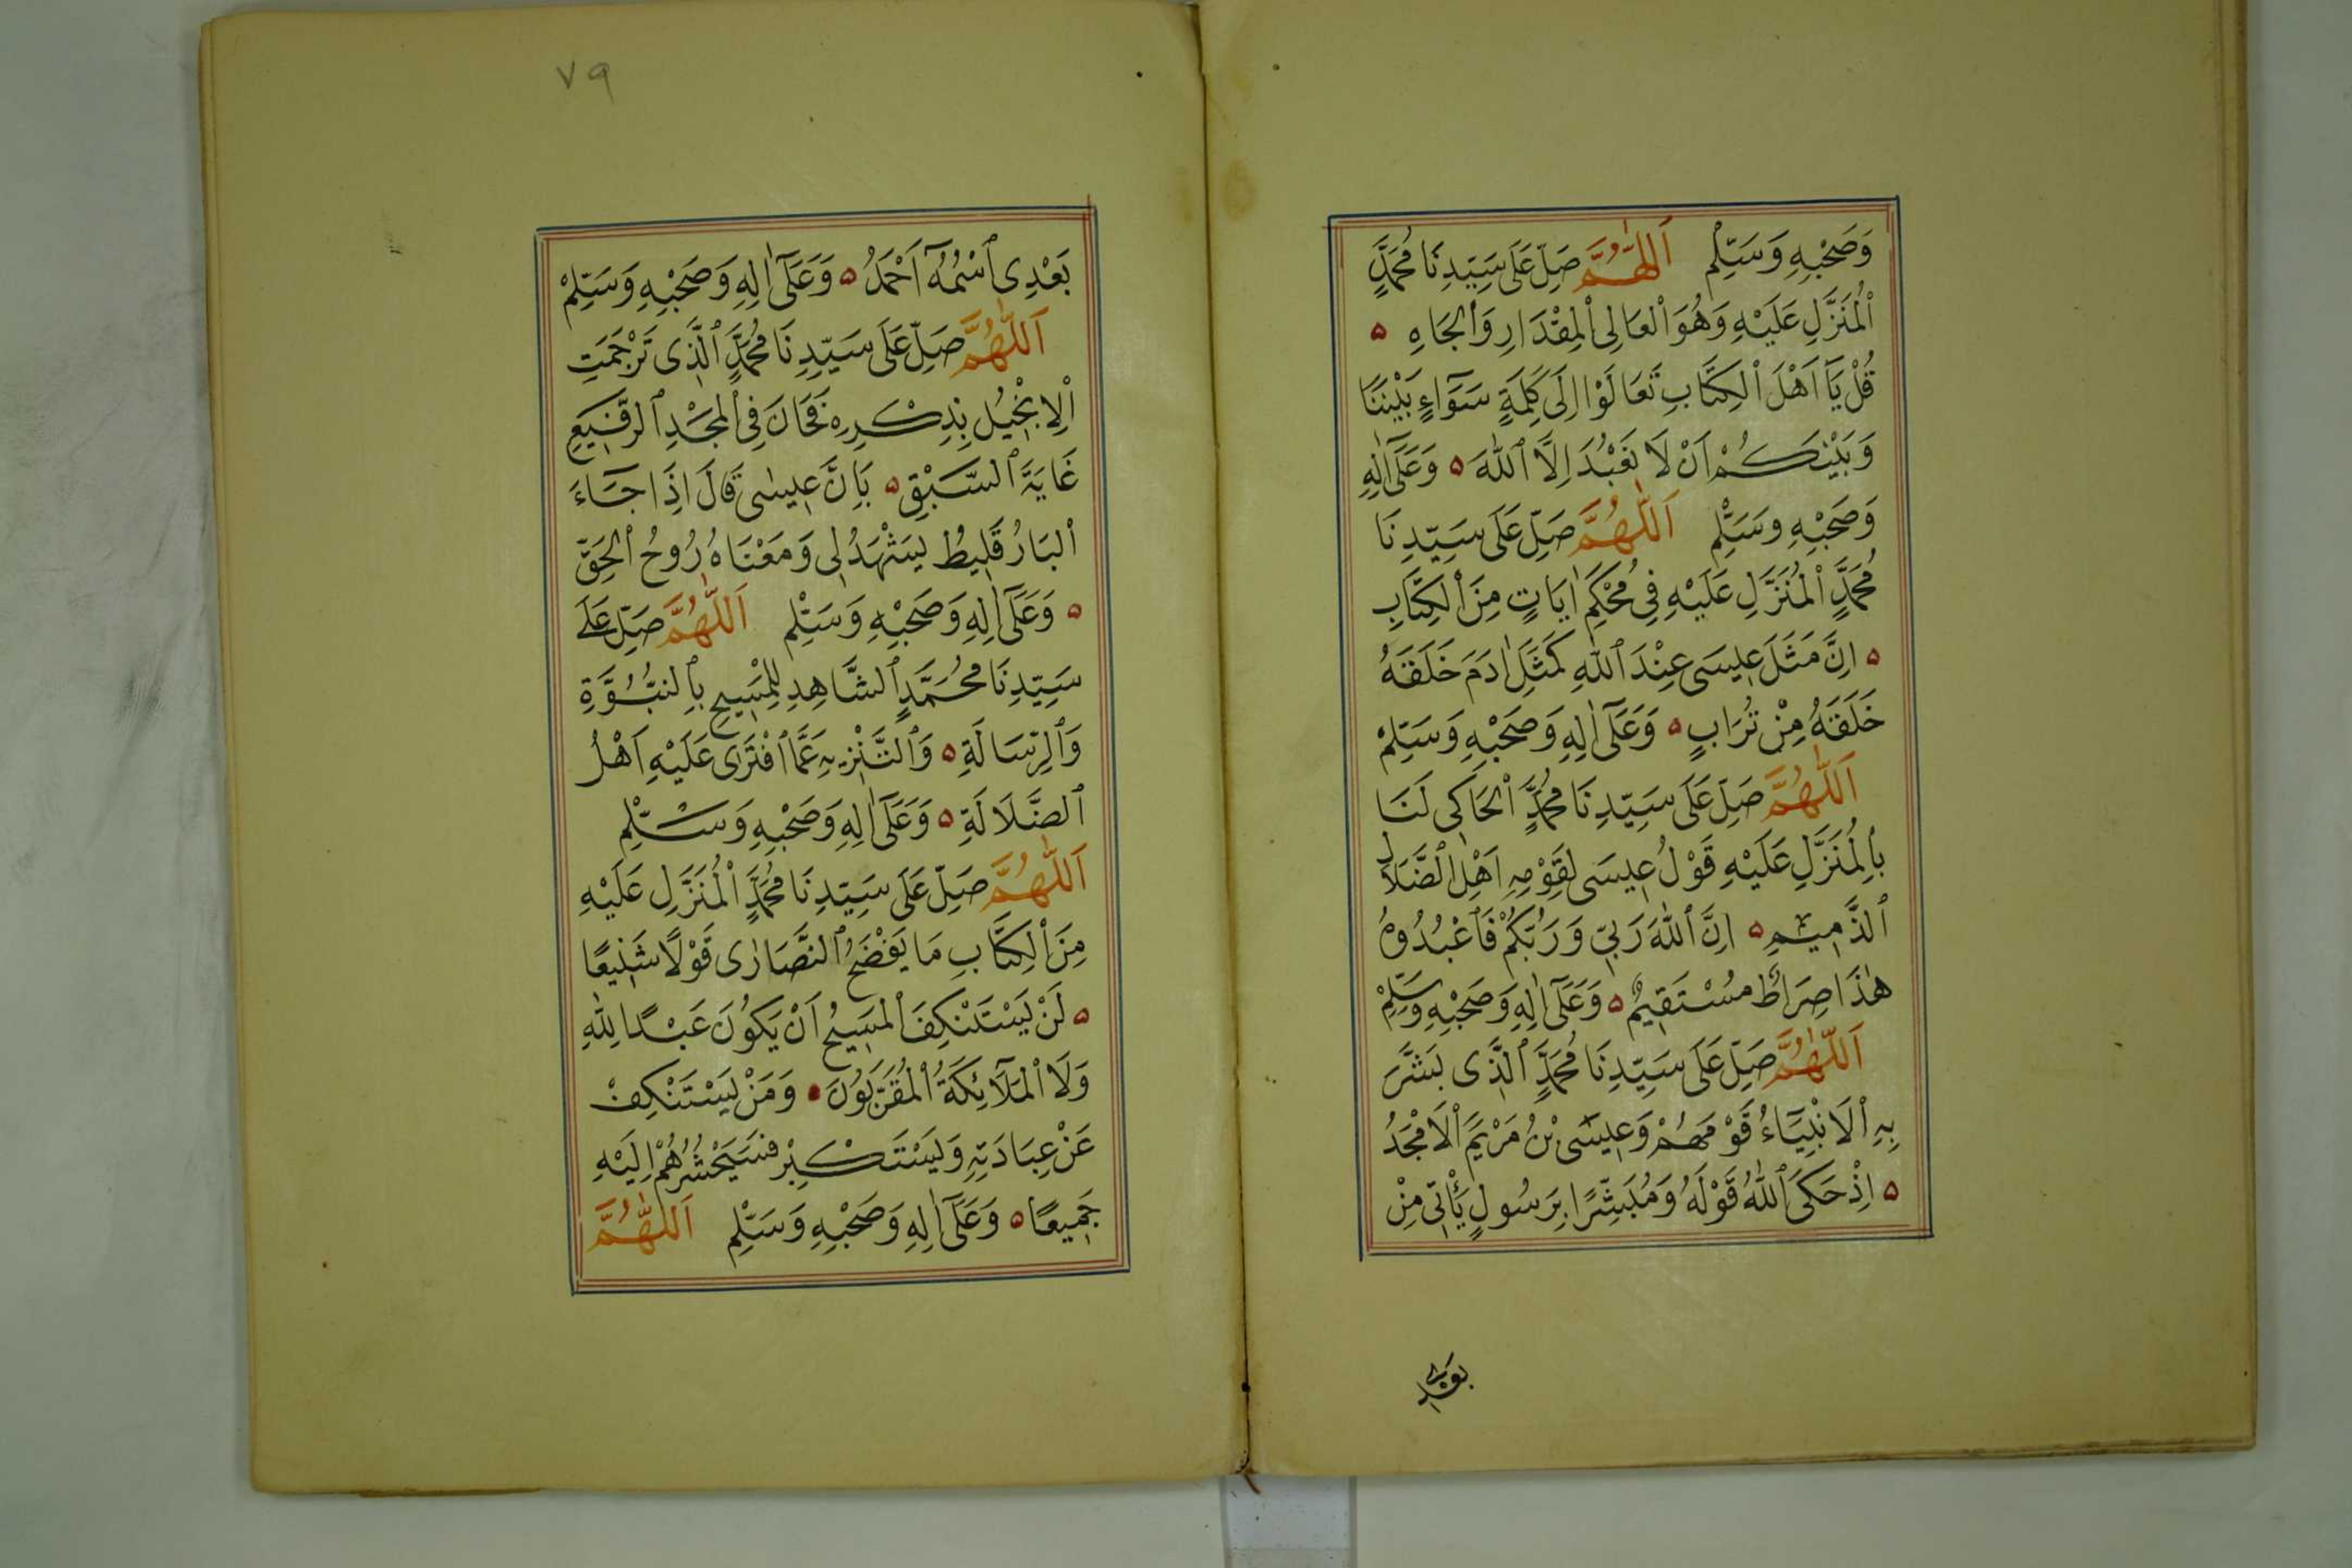 وَصَحْبِهِ وَسَلِّمْ اَللّٰهُمَّ صَلِّ عَلَى سَيِّدِنَا مُحَمَّدٍ
ٱلْمُنَزَّلِ عَلَيْهِ وَهُوَ ٱلْعَالِى ٱلْمِقْدَارِ وَٱلْجَاهِ ه
قُلْ يَآ اَهْلَ ٱلْكِتَابِ تَعَالَوْا اِلَى كَلِمَةٍ سَوَآءٍ بَيْنَنَا
وَبَيْنَكُمْ اَنْ لَا نَعْبُدَ اِلَّا ٱللّٰهَ ه وَعَلَىٓ اٰلِهِ
وَصَحْبِهِ وَسَلِّمْ اَللّٰهُمَّ صَلِّ عَلَى سَيِّدِنَا
مُحَمَّدٍ ٱلْمُنَزَّلِ عَلَيْهِ فِى مُحْكَمِ اٰيَاتٍ مِنَ ٱلْكِتَابِ
ه اِنَّ مَثَلَ عِيسَى عِنْدَ ٱللّٰهِ كَمَثَلِ اٰدَمَ خَلَقَهُ
خَلَقَهُ مِنْ تُرَابٍ ه وَعَلَىٓ اٰلِهِ وَصَحْبِهِ وَسَلِّمْ
اَللّٰهُمَّ صَلِّ عَلَى سَيِّدِنَا مُحَمَّدٍ ٱلْحَاكِى لَنَا
بِٱلْمُنَزَّلِ عَلَيْهِ قَوْلُ عِيسَى لِقَوْمِهِ اَهْلِ ٱلضَّلَالِ
ٱلذَّمِيمِ ه اِنَّ ٱللّٰهَ رَبِّى وَرَبُّكُمْ فَٱعْبُدُوهُ
هٰذَا صِرَاطٌ مُسْتَقِيمٌ ه وَعَلَىٓ اٰلِهِ وَصَحْبِهِ وَسَلِّمْ
اَللّٰهُمَّ صَلِّ عَلَى سَيِّدِنَا مُحَمَّدٍ ٱلَّذِى بَشَّرَ
بِهِ ٱلْاَنْبِيَآءُ قَوْمَهُمْ وَعِيسَى بْنُ مَرْيَمَ ٱلْاَمْجَدُ
ه اِذْ حَكَى ٱللّٰهُ قَوْلَهُ وَمُبَشِّرًا بِرَسُولٍ يَأْتِى مِنْ
بَعْدِى
٧٩
بَعْدِى ٱسْمُهُٓ اَحْمَدُ ه وَعَلَىٓ اٰلِهِ وَصَحْبِهِ وَسَلِّمْ
اَللّٰهُمَّ صَلِّ عَلَى سَيِّدِنَا مُحَمَّدٍ ٱلَّذِى تَرْجَمَتِ
ٱلْاِنْجِيلُ بِذِكْرِهِ فَحَانَ فِى ٱلْمَجْدِ ٱلرَّفِيعِ
غَايَةَ ٱلسَّبْقِ ه بِاَنَّ عِيسٰى قَالَ اِذَا جَآءَ
ٱلْبَارُقَلِيطُ يَشْهَدُ لِى وَمَعْنَاهُ رُوحُ ٱلْحَقِّ
ه وَعَلَىٓ اٰلِهِ وَصَحْبِهِ وَسَلِّمْ اَللّٰهُمَّ صَلِّ عَلَى
سَيِّدِنَا مُحَمَّدٍ ٱلشَّاهِدِ لِلْمَسِيحِ بِٱلنُّبُوَّةِ
وَٱلرِّسَالَةِ ه وَٱلتَّنْزِيهِ عَمَّا ٱفْتَرَى عَلَيْهِ اَهْلُ
ٱلضَّلَالَةِ ه وَعَلَىٓ اٰلِهِ وَصَحْبِهِ وَسَلِّمْ
اَللّٰهُمَّ صَلِّ عَلَى سَيِّدِنَا مُحَمَّدٍ ٱلْمُنَزَّلِ عَلَيْهِ
مِنَ ٱلْكِتَابِ مَا يَفْضَحُ ٱلنَّصَارٰى قَوْلًا شَنِيعًا
ه لَنْ يَسْتَنْكِفَ ٱلْمَسِيحُ اَنْ يَكُونَ عَبْدًا لِلّٰهِ
وَلَا ٱلْمَلَآئِكَةُ ٱلْمُقَرَّبُونَ ه وَمَنْ يَسْتَنْكِفْ
عَنْ عِبَادَتِهِ وَيَسْتَكْبِرْ فَسَيَحْشُرُهُمْ اِلَيْهِ
جَمِيعًا ه وَعَلَىٓ اٰلِهِ وَصَحْبِهِ وَسَلِّمْ اَللّٰهُمَّ